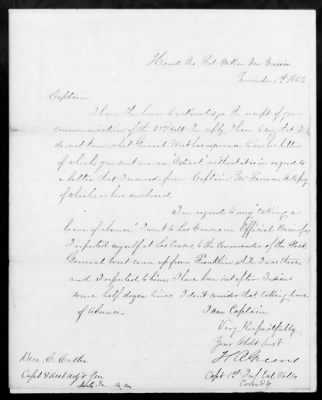 Head Qrs Fort McRae New Mexico
November 1st 1863
Captain
I have the honor to acknowledge the receipt of your
communication of the 22nd Ult In reply I have to say that I
do not know what General West has reference to in the letter
of which you sent me an "Extract" without it is in regard to
a letter that I received from Captain a copy
of which is here enclosed.
In regard to my "taking a
leave of absence" I went to Las Cruces on Official Business
I reported myself at Las Cruces to the Commander of the Post
General West came up from Franklin while I was there
and I reported to him I have been out after Indians
some half dozen times I don't consider that taking leave
of absence.
I am Captain
Very Respectfully
Your Obdt Servt
Ben. C. Cutler
Capt & Asst Adjt Gen
Santa Fe N.M.
H A Greene
Capt 1st Inf Cal Vols
Comd'g